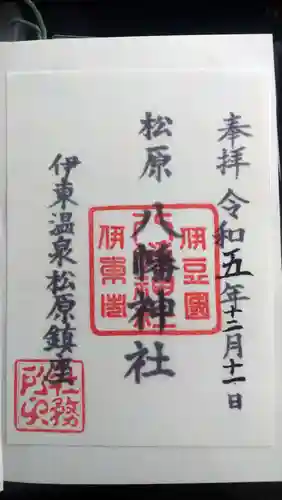 奉拝 令和五年十二月十一日
松原 八幡神社
伊東温泉松原鎮座
伊豆国
八幡神社
伊東市
社務
所印